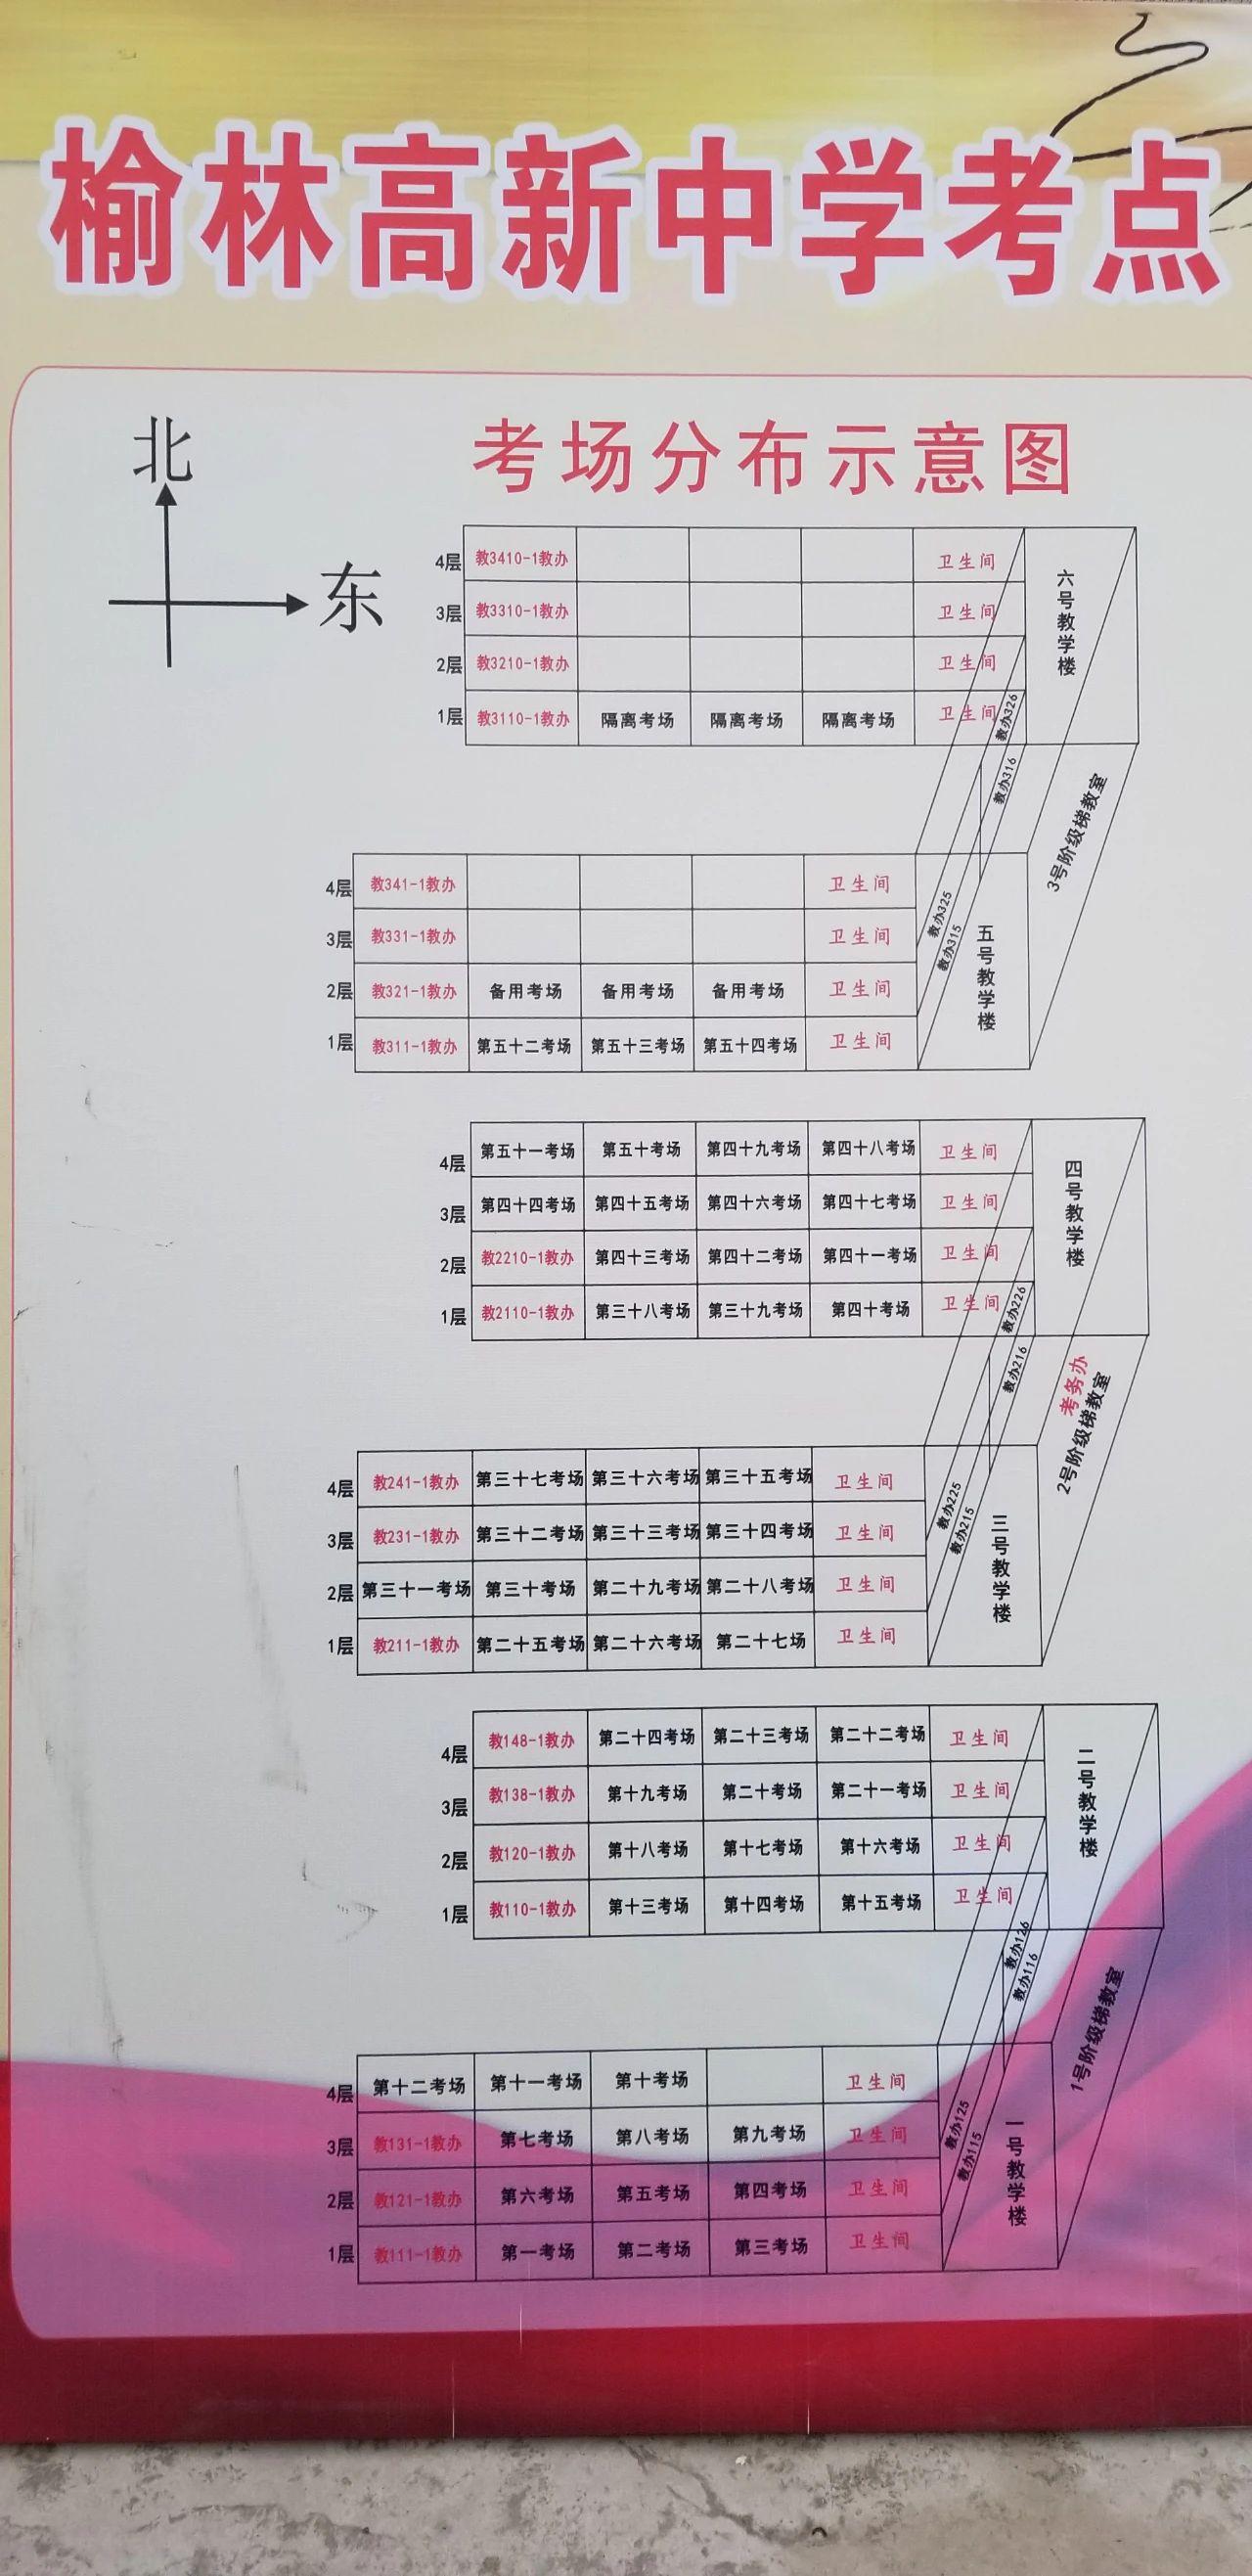 榆林高新中学考点
考场分布示意图
北
东
4层 教3410-1教办 卫生间
3层 教3310-1教办 卫生间
2层 教3210-1教办 卫生间
1层 教3110-1教办 隔离考场 隔离考场 隔离考场 卫生间
六号教学楼
教办326
教办316
3号阶级梯教室
4层 教341-1教办 卫生间
3层 教331-1教办 卫生间
2层 教321-1教办 备用考场 备用考场 备用考场 卫生间
1层 教311-1教办 第五十二考场 第五十三考场 第五十四考场 卫生间
教办325
教办315
五号教学楼
4层 第五十一考场 第五十考场 第四十九考场 第四十八考场 卫生间
3层 第四十四考场 第四十五考场 第四十六考场 第四十七考场 卫生间
2层 教2210-1教办 第四十三考场 第四十二考场 第四十一考场 卫生间
1层 教2110-1教办 第三十八考场 第三十九考场 第四十考场 卫生间
四号教学楼
教办226
教办216
考务办
2号阶级梯教室
4层 教241-1教办 第三十七考场 第三十六考场 第三十五考场 卫生间
3层 教231-1教办 第三十二考场 第三十三考场 第三十四考场 卫生间
2层 第三十一考场 第三十考场 第二十九考场 第二十八考场 卫生间
1层 教211-1教办 第二十五考场 第二十六考场 第二十七场 卫生间
教办225
教办215
三号教学楼
4层 教148-1教办 第二十四考场 第二十三考场 第二十二考场 卫生间
3层 教138-1教办 第十九考场 第二十考场 第二十一考场 卫生间
2层 教120-1教办 第十八考场 第十七考场 第十六考场 卫生间
1层 教110-1教办 第十三考场 第十四考场 第十五考场 卫生间
二号教学楼
教办126
教办116
1号阶级梯教室
4层 第十二考场 第十一考场 第十考场 卫生间
3层 教131-1教办 第七考场 第八考场 第九考场 卫生间
2层 教121-1教办 第六考场 第五考场 第四考场 卫生间
1层 教111-1教办 第一考场 第二考场 第三考场 卫生间
教办125
教办115
一号教学楼